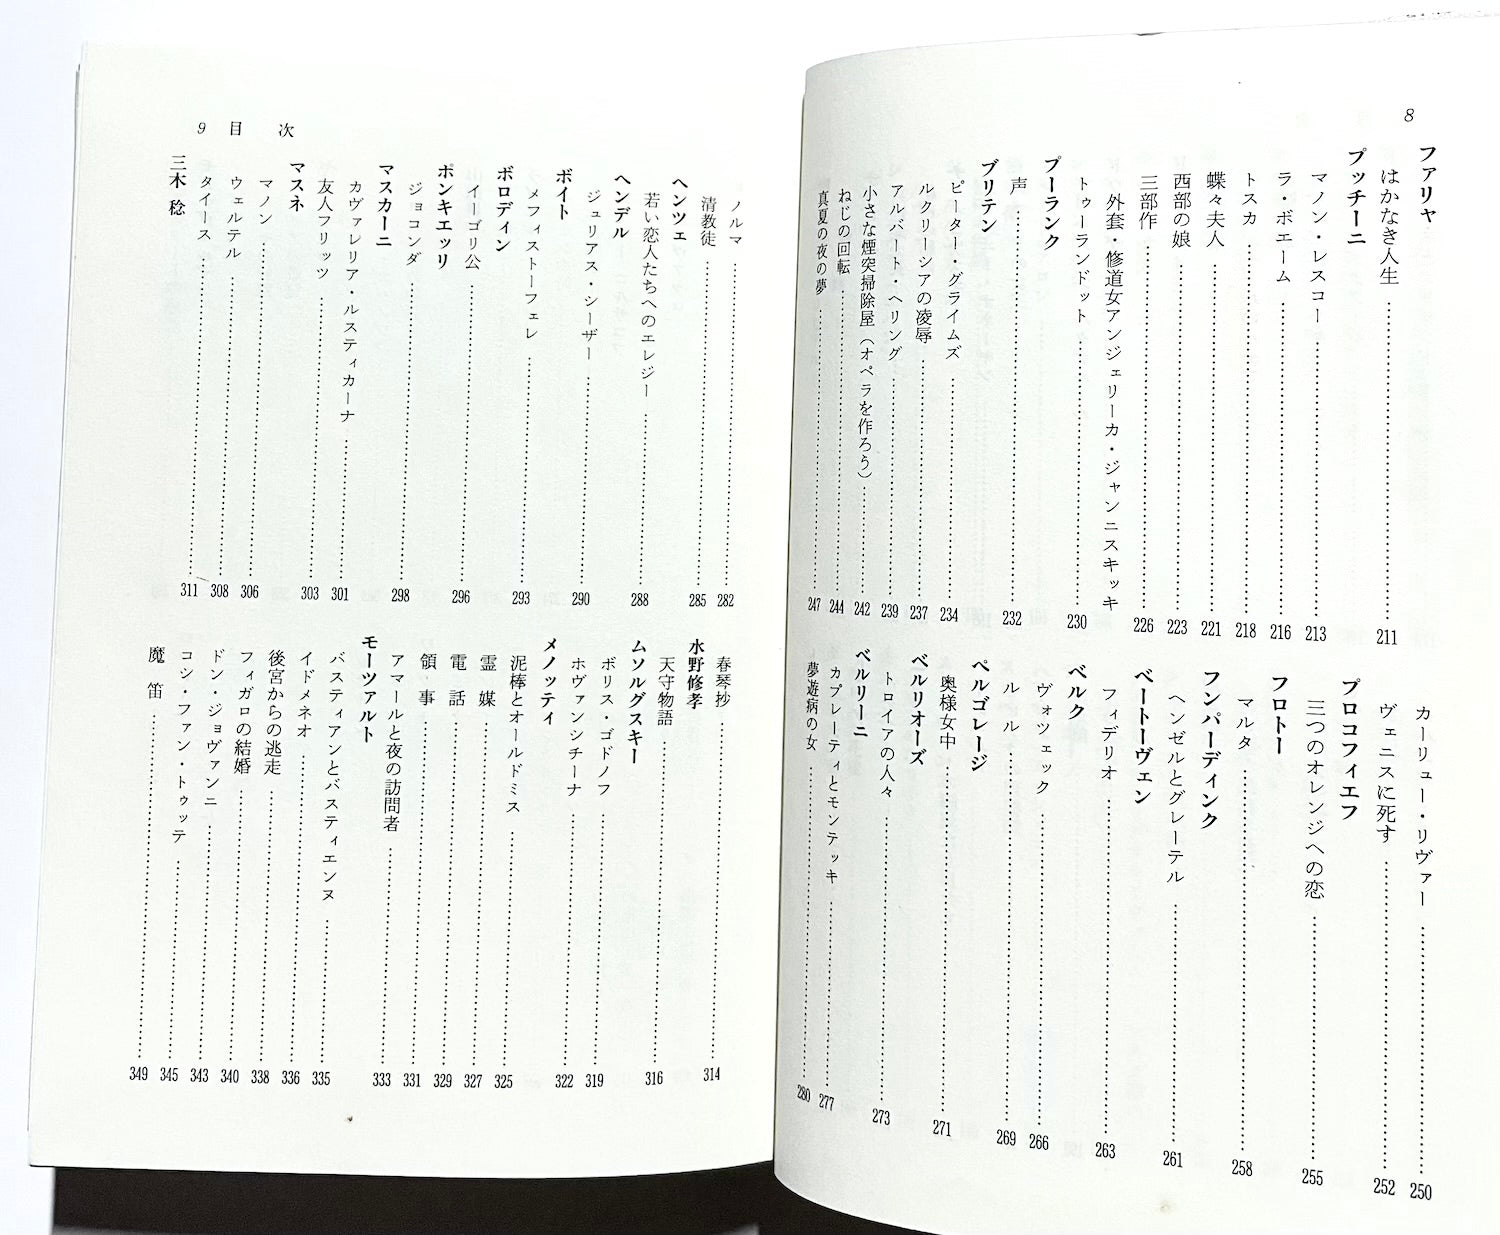 8
ファリヤ
はかなき人生 211
プッチーニ
マノン・レスコー 213
ラ・ボエーム 216
トスカ 218
蝶々夫人 221
西部の娘 223
三部作 226
外套・修道女アンジェリーカ・ジャンニスキッキ
トゥーランドット 230
プーランク
声 232
ブリテン
ピーター・グライムズ 234
ルクリーシアの凌辱 237
アルバート・ヘリング 239
小さな煙突掃除屋(オペラを作ろう) 242
ねじの回転 244
真夏の夜の夢 247
カーリュー・リヴァー 250
ヴェニスに死す 252
プロコフィエフ
三つのオレンジへの恋 255
フロトー
マルタ 258
フンパーディンク
ヘンゼルとグレーテル 261
ベートーヴェン
フィデリオ 263
ベルク
ヴォツェック 266
ルル 269
ペルゴレージ
奥様女中 271
ベルリオーズ
トロイアの人々 273
ベルリーニ
カプレーティとモンテッキ 277
夢遊病の女 280
9 目次
ノルマ 282
清教徒 285
ヘンツェ
若い恋人たちへのエレジー 288
ヘンデル
ジュリアス・シーザー 290
ボイト
メフィストーフェレ 293
ボロディン
イーゴリ公 296
ポンキエッリ
ジョコンダ 298
マスカーニ
カヴァレリア・ルスティカーナ 301
友人フリッツ 303
マスネ
マノン 306
ウェルテル 308
タイース 311
三木稔
春琴抄 314
水野修孝
天守物語 316
ムソルグスキー
ボリス・ゴドノフ 319
ホヴァンシチーナ 322
メノッティ
泥棒とオールドミス 325
霊媒 327
電話 329
領事 331
アマールと夜の訪問者 333
モーツァルト
バスティアンとバスティエンヌ 335
イドメネオ 336
後宮からの逃走 338
フィガロの結婚 340
ドン・ジョヴァンニ 343
コシ・ファン・トゥッテ 345
魔笛 349